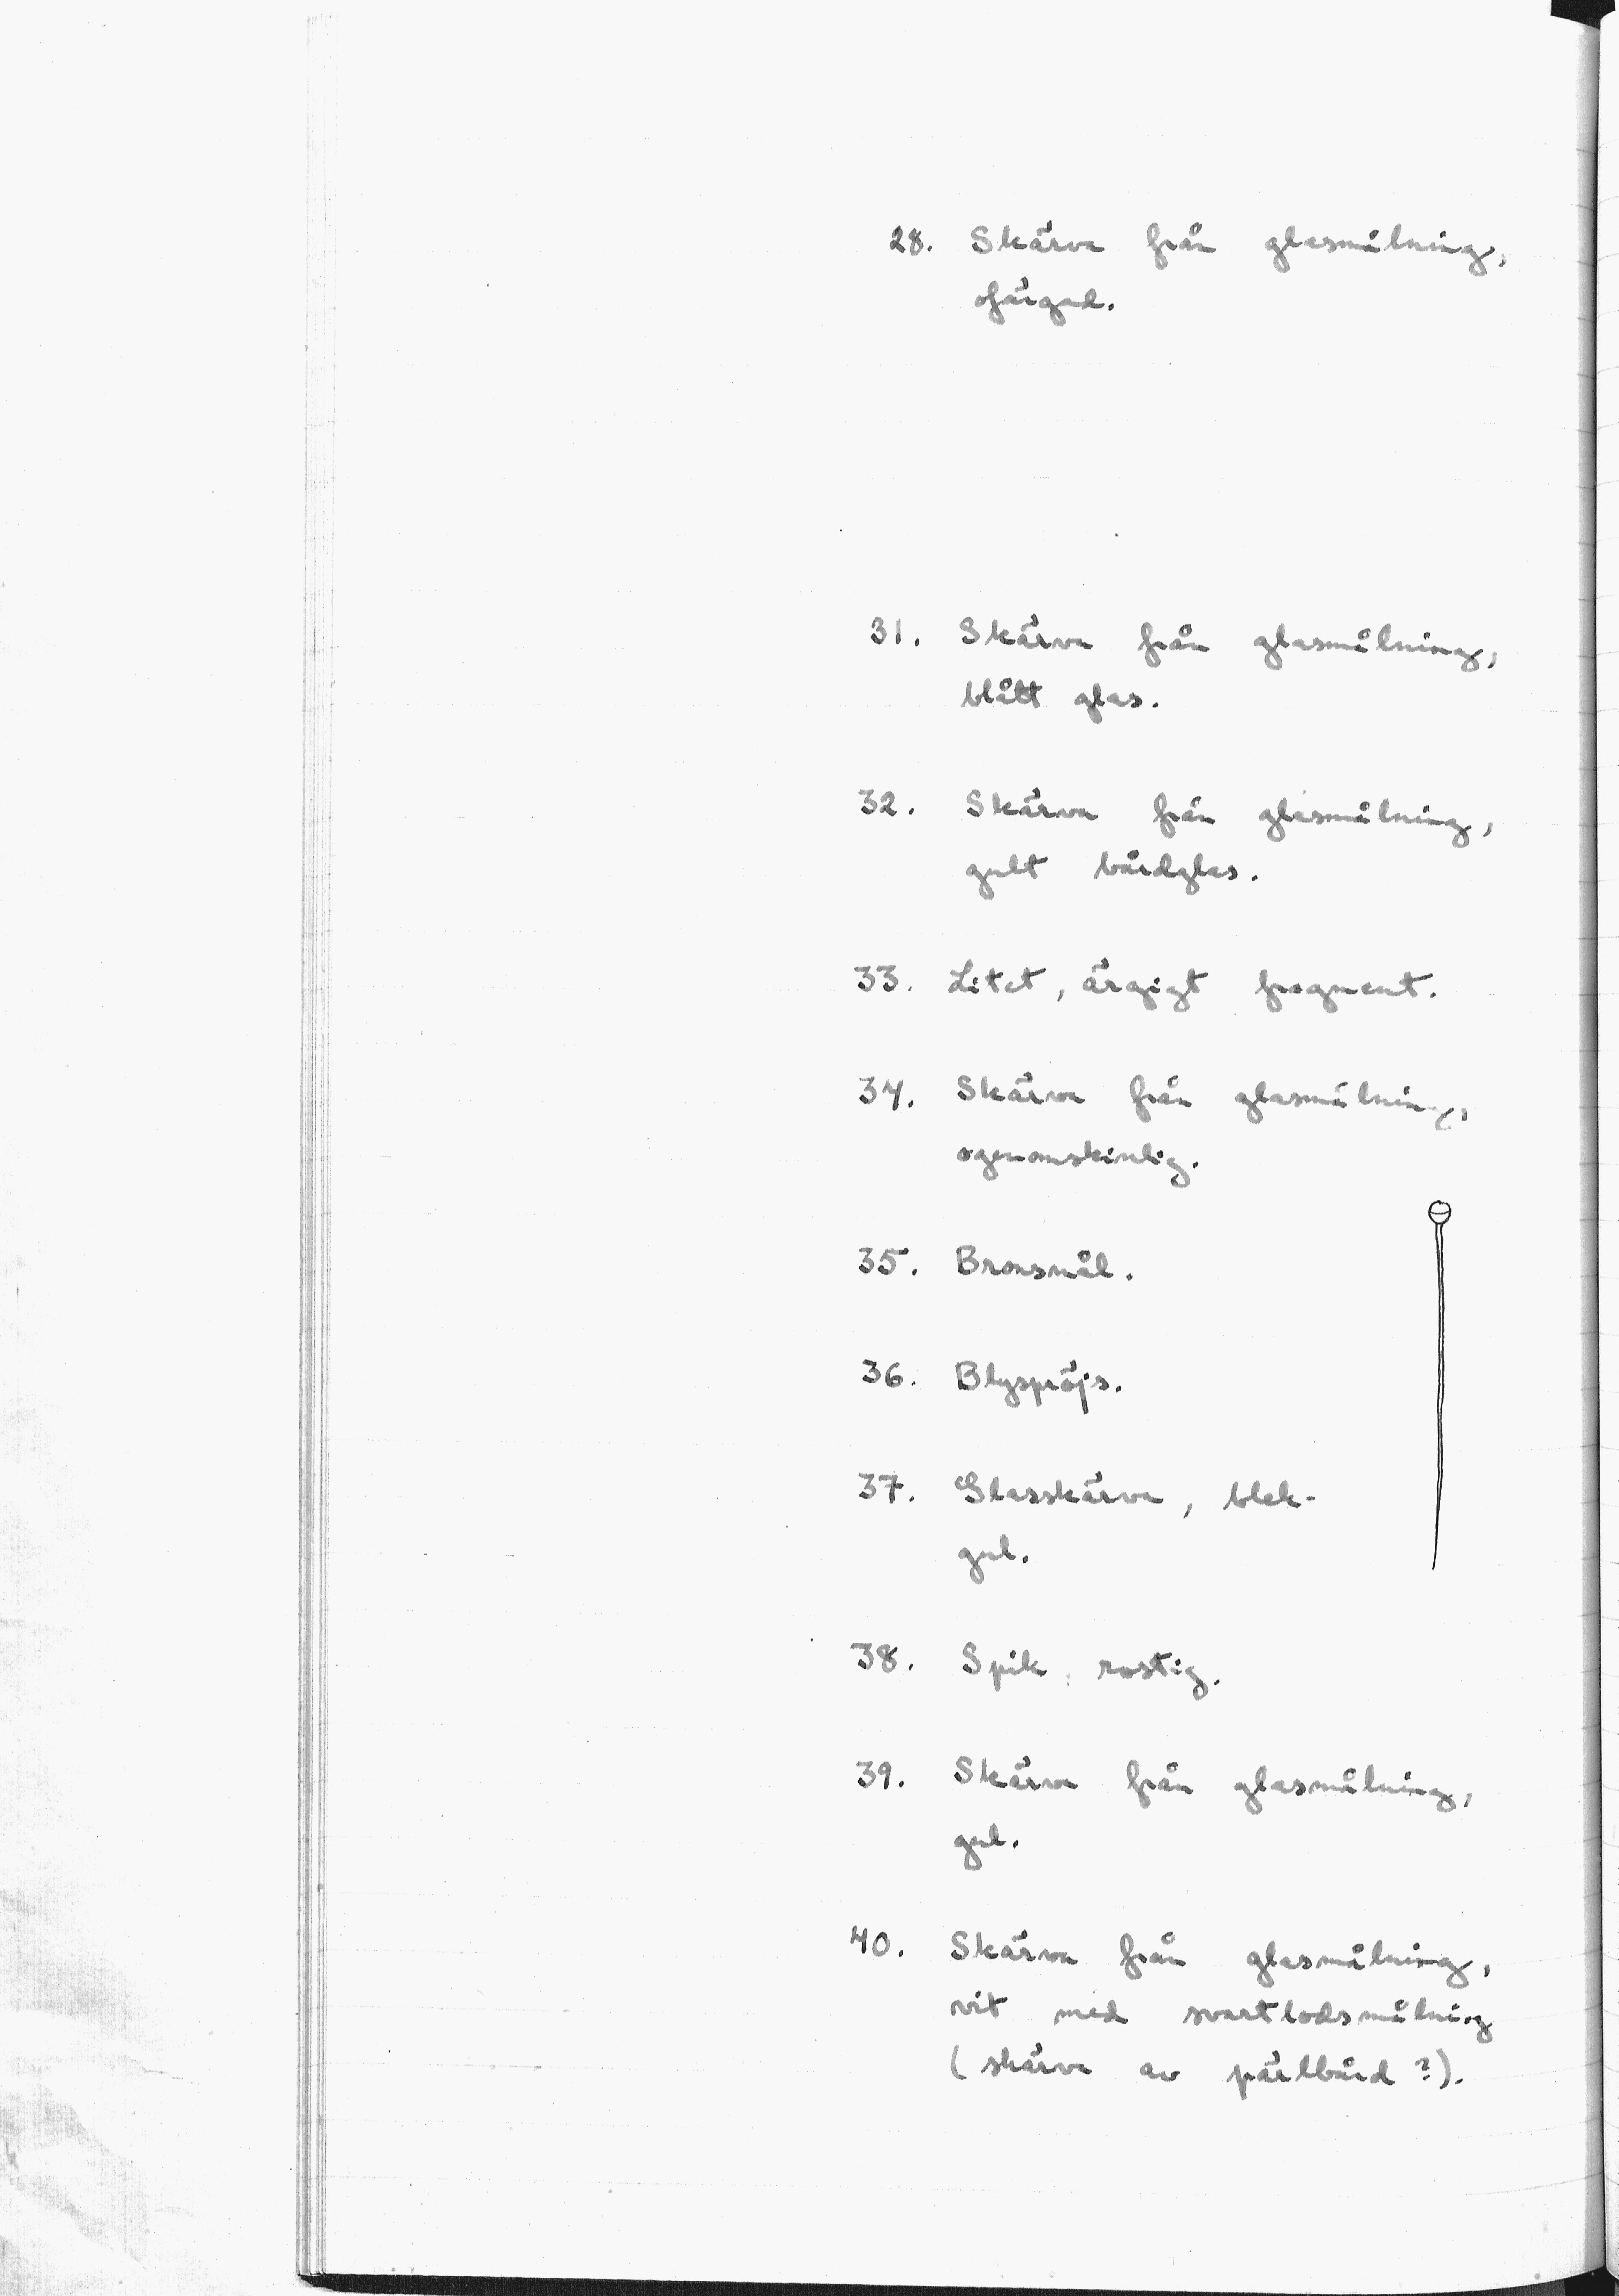 28. Skärva från glasmålning,
ofärgad.
31. Skärva från glasmålning,
blått glas.
32. Skärva från glasmålning,
gult bårdglas.
33. Litet, ärgigt fragment.
34. Skärva från glasmålning,
ogenomskinlig.
35. Bronsnål.
36. Blyspröjs.
37. Glasskärva, blek-
gul.
38. Spik, rostig.
39. Skärva från glasmålning,
gul.
40. Skärva från glasmålning,
vit med svartlodsmålning
(skärva av pärlbård?).